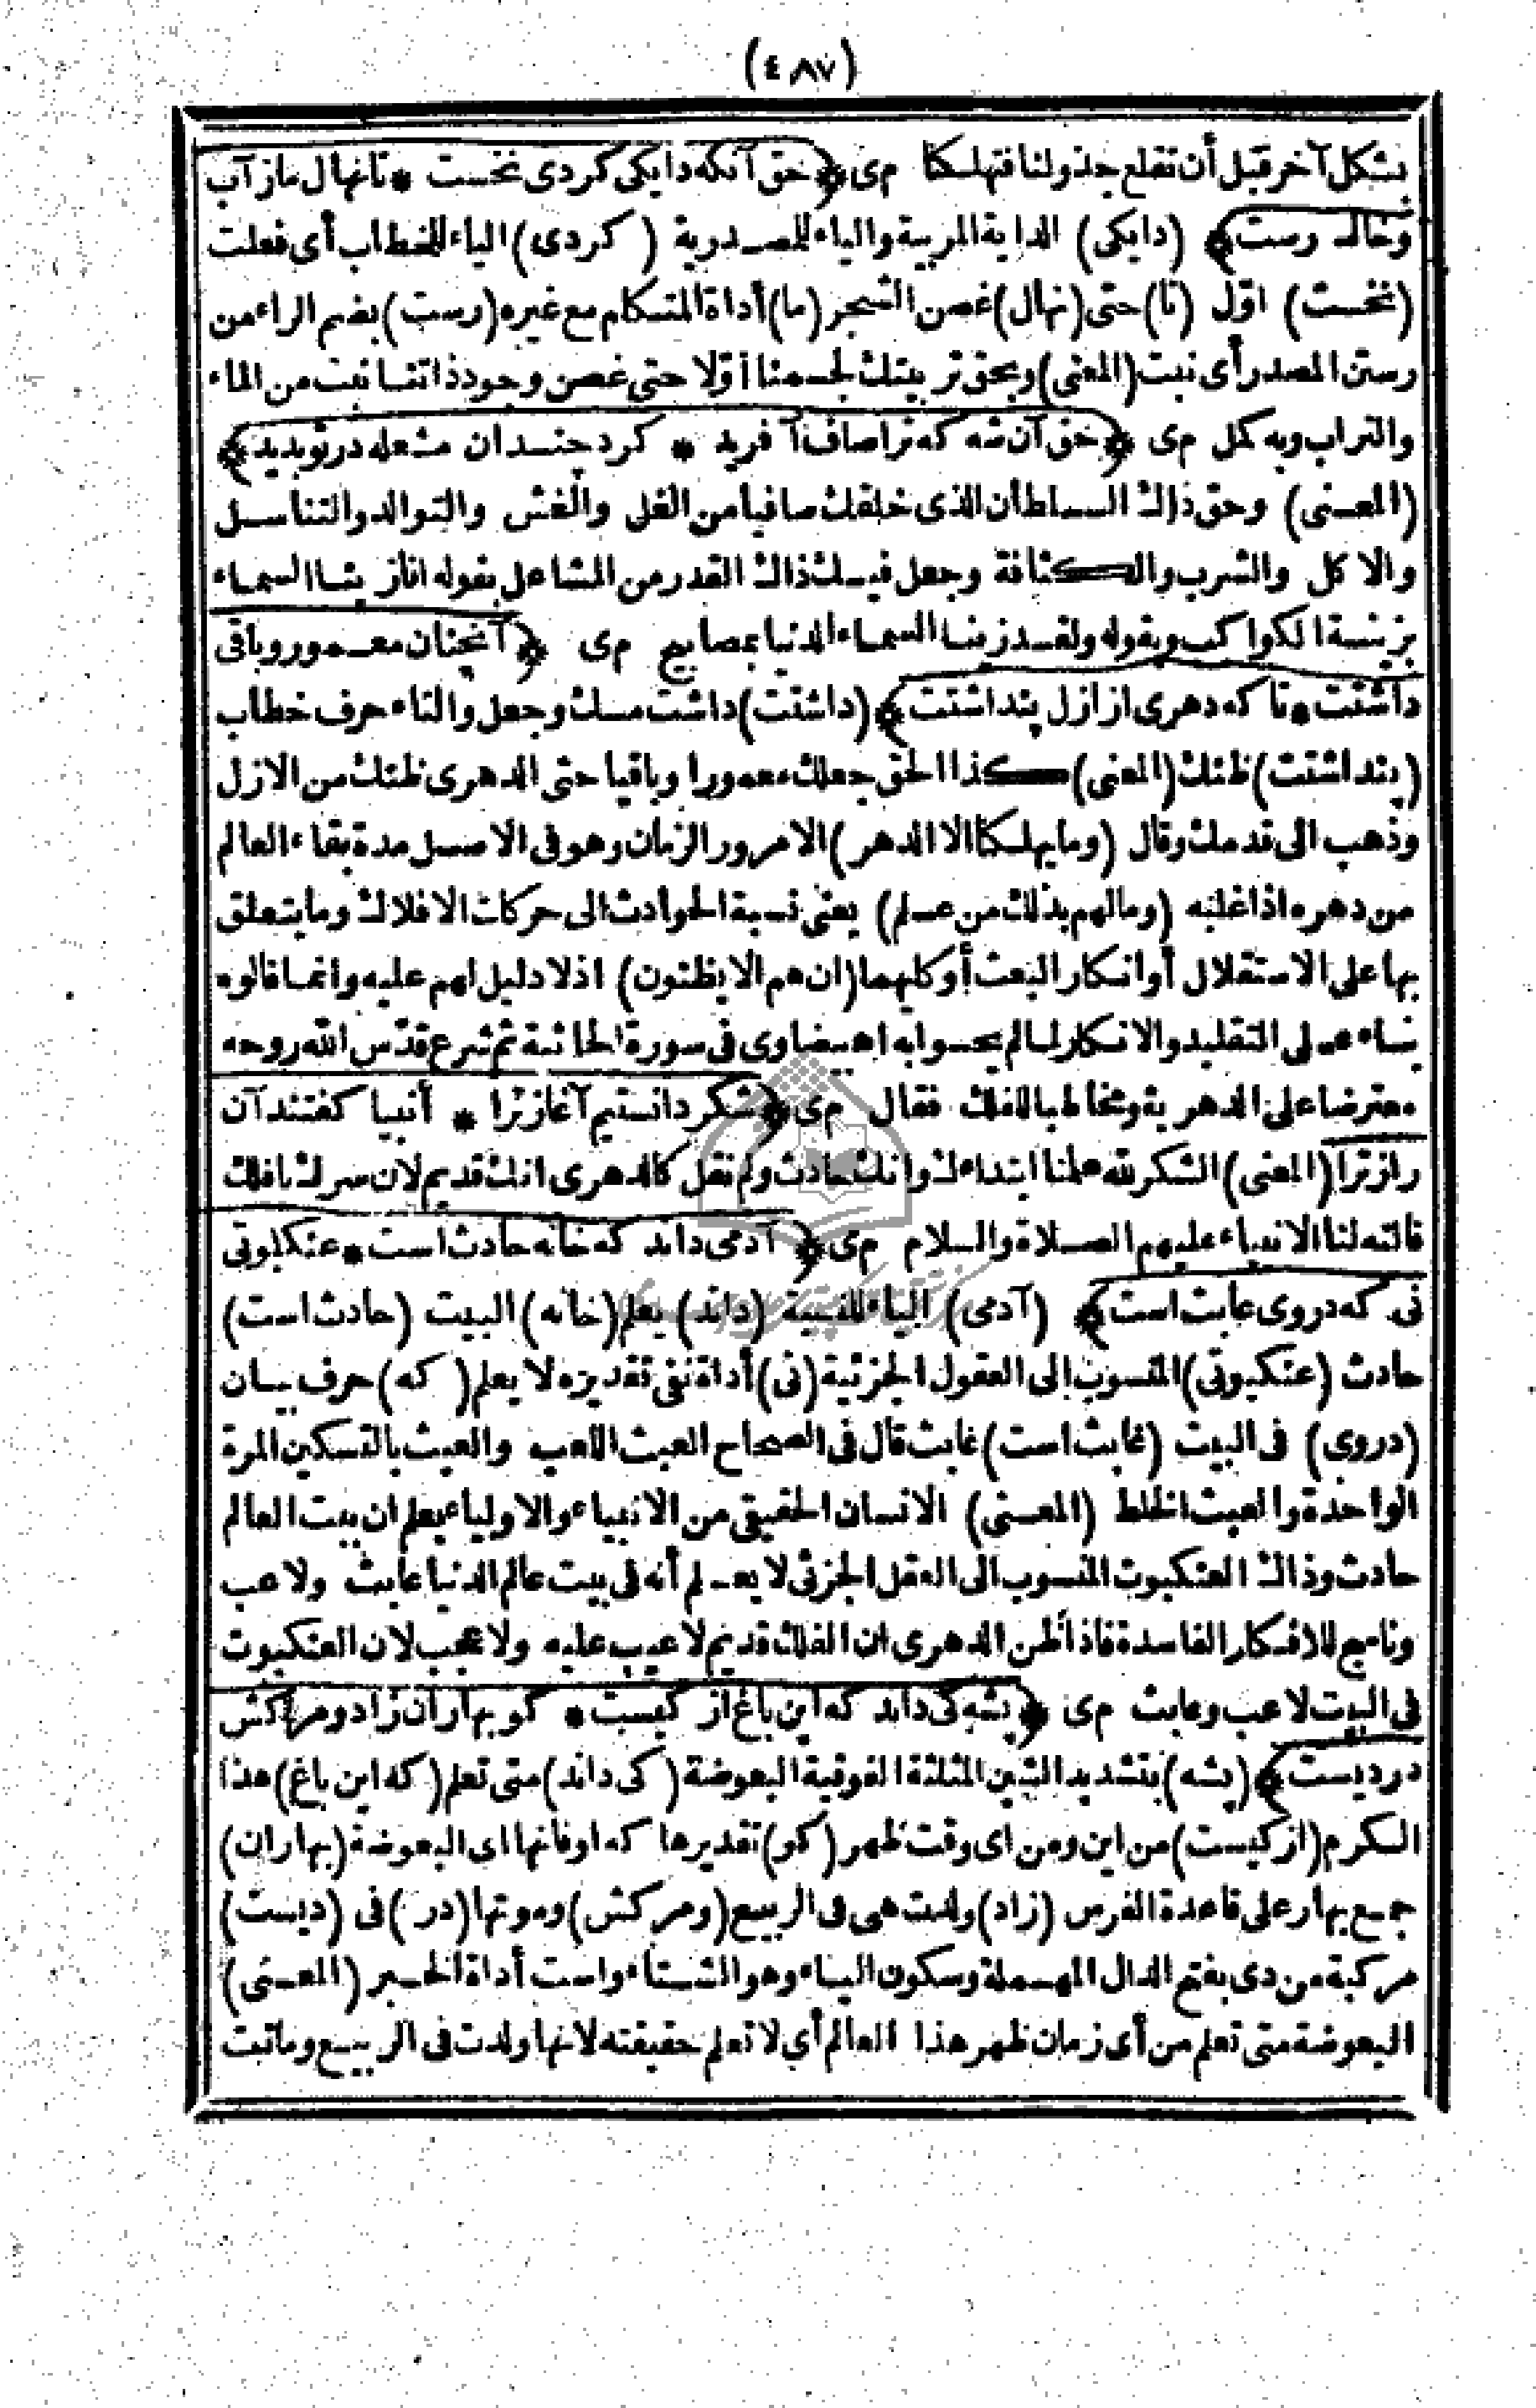 (٤٨٧)
بشكل آخر قبل أن تقلع جذولنا فتهلكنا مى ﴿حق آنكه دايكى كردى نخست * تا نهال ماز آب
وخاك رست﴾ (دايكى) الداية المربية والياء للمصدرية (كردى) الياء للخطاب أى فعلت
(نخست) اوّل (تا) حتى (نهال) غصن الشجر (ما) أداة المتكلم مع غيره (رست) بضم الراء من
رستن المصدر أى نبت (المعنى) وبحق تربيتك لجسمنا اوّلا حتى غصن وجود ذاتنا نبت من الماء
والتراب وبه كمل مى ﴿حق آن شه كه ترا صاف آفريد * كرد چندان مشعله در تو بديد﴾
(المعنى) وحق ذلك السلطان الذى خلقك صافيا من الغل والغش والتوالد والتناسل
والاكل والشرب والكثافة وجعل فيك ذاك القدر من المشاعل بقوله انا زينا السماء
بزينة الكواكب وبقوله ولقد زينا السماء الدنيا بمصابيح مى ﴿آنچنان معمور وباقى
داشتت * تا كه دهرى از ازل پنداشتت﴾ (داشتت) داشت مسك وجعل والتاء حرف خطاب
(پنداشتت) ظنك (المعنى) كذا الحق جعلك معمورا وباقيا حتى الدهرى ظنك من الازل
وذهب الى قدمك وقال (وما يهلكنا الا الدهر) الا مرور الزمان وهو فى الاصل مدة بقاء العالم
من دهره اذا غلبه (وما لهم بذلك من علم) يعنى نسبة الحوادث الى حركات الافلاك وما يتعلق
بها على الاستقلال أو انكار البعث أو كليهما (ان هم الا يظنون) اذ لا دليل لهم عليه وانما قالوه
بناء على التقليد والانكار لما لم يحسوا به اه بيضاوى فى سورة الجاثية ثم شرع قدّس الله روحه
معترضا على الدهرية ومخاطبا للفلك فقال مى ﴿شكر دانستيم آغاز ترا * أنبيا كفتند آن
راز ترا﴾ (المعنى) الشكر لله علمنا ابتداءك وانك حادث ولم نقل كالدهرى انك قديم لان سرك يا فلك
قالته لنا الانبياء عليهم الصلاة والسلام مى ﴿آدمى داند كه خانه حادث است * عنكبوتى
نى كه در وى عابث است﴾ (آدمى) الياء للنسبة (داند) يعلم (خانه) البيت (حادث است)
حادث (عنكبوتى) المنسوب الى العقول الجزئية (نى) أداة نفى تقديره لا يعلم (كه) حرف بيان
(دروى) فى البيت (عابث است) عابث قال فى الصحاح العبث اللعب والعبث بالتسكين المرة
الواحدة والعبث الخلط (المعنى) الانسان الحقيقى من الانبياء والاولياء يعلم ان بيت العالم
حادث وذاك العنكبوت المنسوب الى العقل الجزئى لا يعلم أنه فى بيت عالم الدنيا عابث ولاعب
وناسج للافكار الفاسدة فاذا ظن الدهرى ان الفلك قديم لا عيب عليه ولا عجب لان العنكبوت
فى البيت لاعب وعابث مى ﴿پشه كى داند كه اين باغ از كيست * كو بهاران زاد ومركش
در ديست﴾ (پشه) بتشديد الشين المثلثة الفوقية البعوضة (كى داند) متى تعلم (كه اين باغ) هذا
الكرم (از كيست) من اين ومن اى وقت ظهر (كو) تقديرها كه او فانها اى البعوضة (بهاران)
جمع بهار على قاعدة الفرس (زاد) ولدت هى فى الربيع (ومركش) وموتها (در) فى (ديست)
مركبة من دى بفتح الدال المهملة وسكون الياء وهو الشتاء واست أداة الخبر (المعنى)
البعوضة متى تعلم من أى زمان ظهر هذا العالم أي لا تعلم حقيقته لانها ولدت فى الربيع وماتت